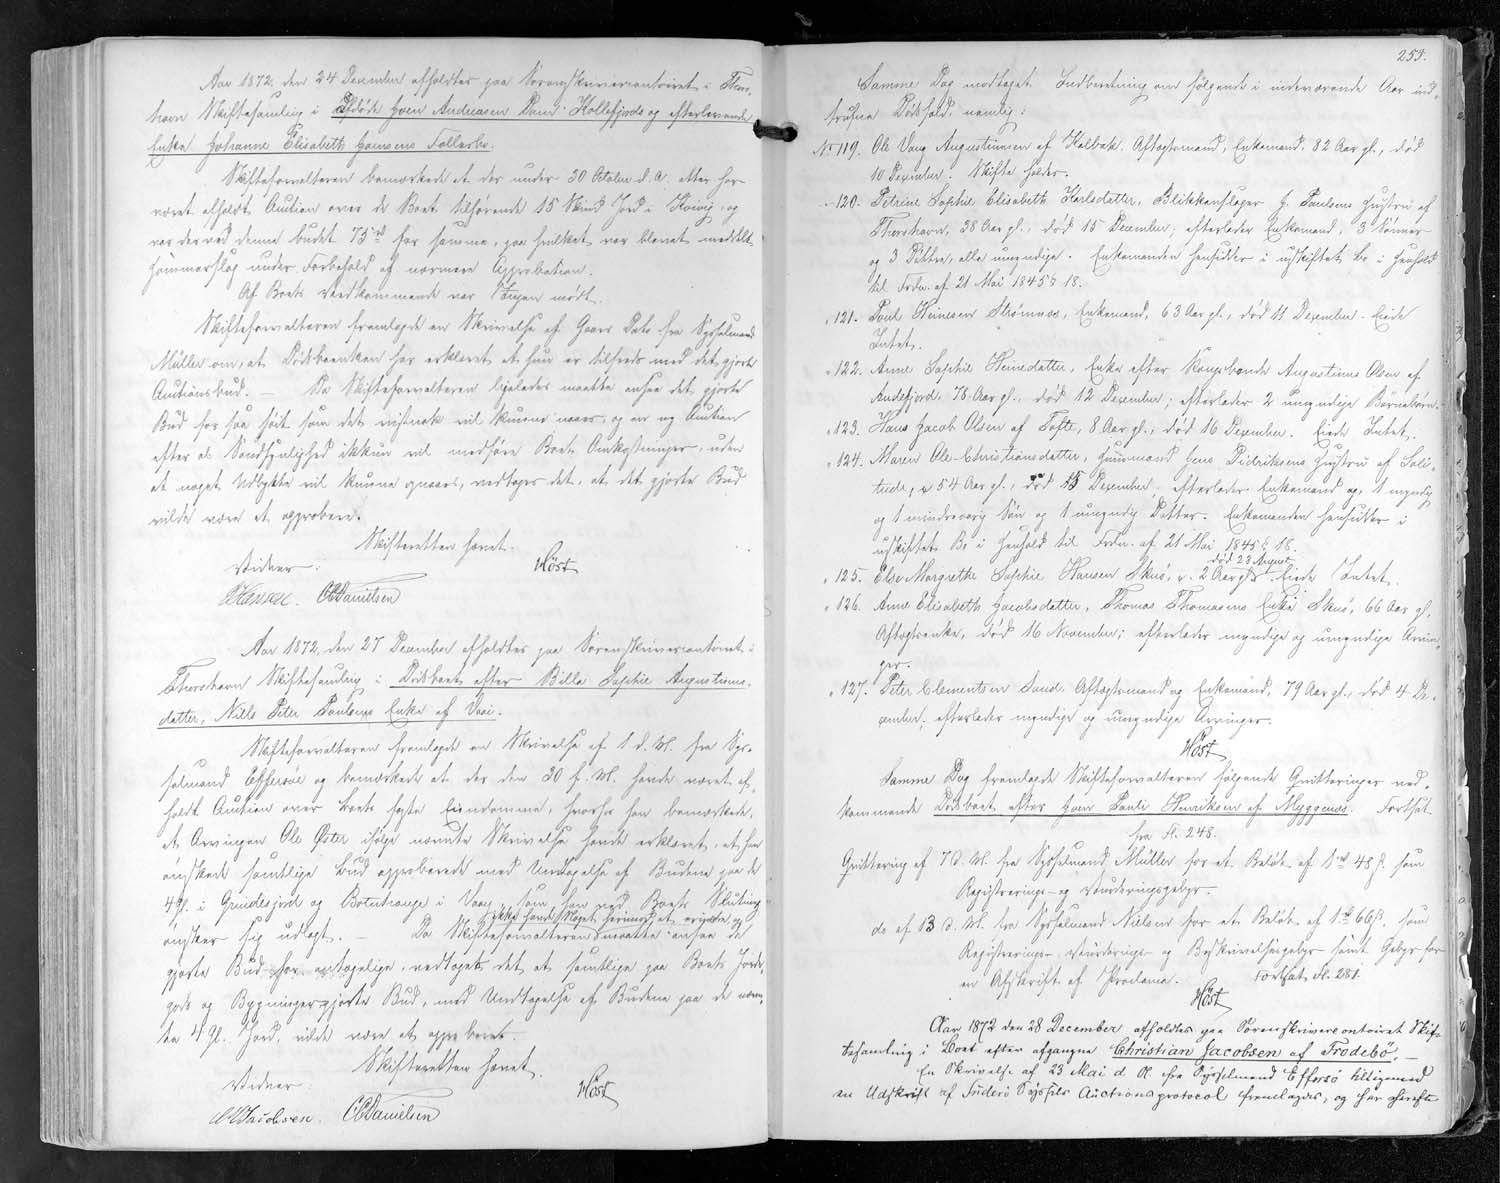 Aar 1872, den 24 December afholdtes paa Sorenskrivercontoiret i Thors-
havn Skiftesamling i Afdøde Joen Andreasen Sand Kollefjords og efterlevende
Enke Johanne Elisabeth Joensens Fællesbo.
Skifteforvalteren bemærkede at der under 30 October d. A. efter her
været afholdt Auction over de Boet tilhørende 15 Skind Jord i Kvivig, og
var der ved denne budet 75 rd for samme, paa hvilket var blevet meddelt
Hammerslag under Forbehold af nærmere Approbation.
Af Boets Vedkommende var Ingen mødt.
Skifteforvalteren fremlagde en Skrivelse af Gaars Dato fra Sysselmand
Müller om, at Dødsboenken har erklæret at hun er tilfreds med det gjorte
Auctionsbud. — Da Skifteforvalteren ligeledes maatte ansee det gjorte
Bud for saa høit som det vistnok vil kunne naaes, og en ny Auction
efter al Sandsynlighed ikkun vil medføre Boet Omkostninger, uden
at noget Udbytte vil kunne opnaaes, vedtoges det, at det gjorte Bud
vilde være at approbere.
Skifteretten hævet.
Vidner: Höst
Hansen. CCDanielsen
Aar 1872, den 27 December afholdtes paa Sorenskrivercontoiret i
Thorshavn Skiftesamling i Dødsboet efter Billa Sophie Augustinus-
datter, Niels Peter Poulsens Enke af Vaai.
Skifteforvalteren fremlagde en Skrivelse af 1 d. M. fra Sys-
selmand Effersøe og bemærkede at der den 30 f. M. havde været af-
holdt Auction over Boets faste Eiendomme, hvorhos han bemærkede,
at Arvingen Ole Øster ifølge nævnte Skrivelse havde erklæret, at han
ønskede samtlige Bud approberede med Undtagelse af Budene paa de
4 Gl. i Grundesjord og Botnstrange i Vaag, som han ved Boets Slutning
ønsker sig udlagt. — Da Skifteforvalteren ikke havde Noget herimod at erindre og maatte ansee de
gjorte Bud for antagelige, vedtoges det at samtlige paa Boets Jorde-
gods og Bygninger gjorte Bud, med Undtagelse af Budene paa de nævn-
te 4 Gl. Jord, vilde være at approberet.
Skifteretten hævet.
Vidner: Höst
Jacobsen. CCDanielsen
253.
Samme Dag modtaget Indberetning om følgende i indeværende Aar ind-
trufne Dødsfald, nemlig:
No 119. Ole Vang Augustinussen af Holbak, Aftægtsmand, Enkemand, 82 Aar gl., død
10 December. Skifte holdes.
- 120. Petrine Sophie Elisabeth Karlsdatter, Blikkenslager H. Poulsens Hustru af
Thorshavn, 38 Aar gl., død 15 December; efterlader Enkemand, 3 Sönner
og 3 Döttre, alle umyndige. Enkemanden hensidder i uskiftet Bo i Henhold
til Frdn. af 21 Mai 1845 § 18.
" 121. Poul Heinesen Strömnæs, Enkemand, 63 Aar gl., död 11 December. Eiede
Intet.
" 122. Anne Sophie Heinedatter, Enke efter Kongsbonde Augustinus Olsen af
Andefjord, 78 Aar gl., död 12 December; efterlader 2 umyndige Börnebörn.
" 123. Hans Jacob Olsen af Tofte, 8 Aar gl., död 16 December. Eiede Intet.
" 124. Maren Ole Christiansdatter, Huusmand Jens Didriksens Hustru af Soli-
tude, 54 Aar gl., död 15 December, efterlader Enkemand og 1 myndig
og 1 mindreaarig Sön og 1 umyndig Datter. Enkemanden hensidder i
uskiftet Bo i Henhold til Frdn. af 21 Mai 1845 § 18.
" 125. Else Margrethe Sophie Hansen Skuö, 2 Aar gl. död 23 August. Eiede Intet.
" 126. Anne Elisabeth Jacobsdatter, Thomas Thomasens Enke Skuö, 66 Aar gl.
Aftægtsenke, död 16 November; efterlader myndige og umyndige Arvin-
ger.
" 127. Peter Clementsen Sand, Aftægtsmand og Enkemand, 79 Aar gl., död 4 De-
cember, efterlader myndige og umyndige Arvinger.
Höst
Samme Dag fremlagde Skifteforvalteren følgende Qvitteringer ved-
kommende Dödsboet efter Joen Pauli Henriksen af Myggenæs. Fortsat
fra Fl. 248.
Qvittering af 7 d. M. fra Sysselmand Müller for et Beløb af 1 rd 48 ß. som
Registrerings- og Vurderingsgebyr.
do af 13 d. M. fra Sysselmand Nielsen for et Beløb af 1 rd 66 ß. som
Registrerings-, Vurderings- og Beskrivelsesgebyr samt Gebyr for
en Afskrift af Proclama. Fortsat Fl. 281.
Höst
Aar 1872 den 28 December afholdes paa Sorenskrivercontoiret Skif-
tesamling i Boet efter afgangne Christian Jacobsen af Frodebö. —
En Skrivelse af 23 Mai d A. fra Sysselmand Effersö tilligemed
en Udskrift af Suderö Syssels Auctionsprotocol fremlagdes, og har herefter